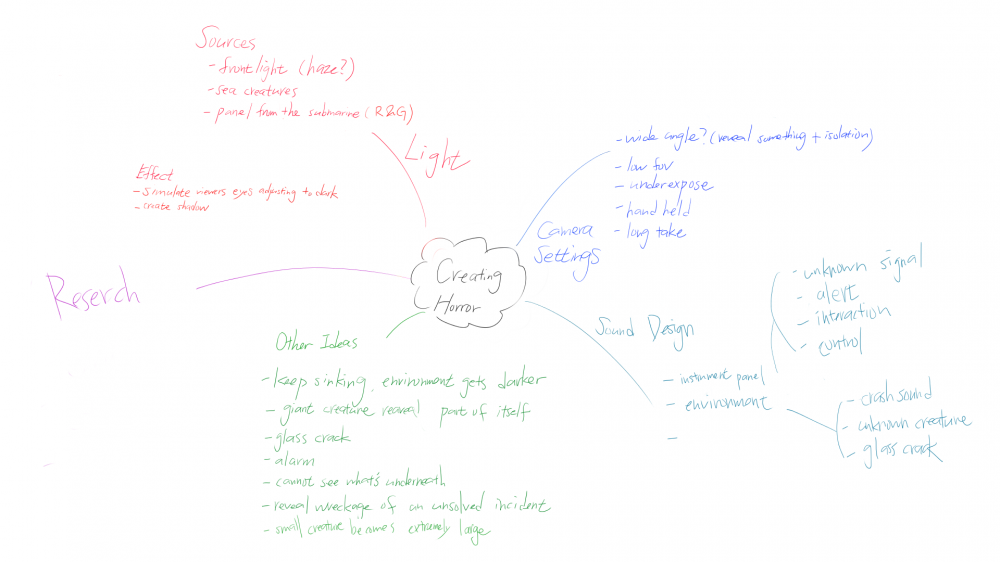 Sources
- frontlight (haze?)
- sea creatures
- panel from the submarine (R&G)
Light
Effect
- simulate viewers eyes adjusting to dark
- create shadow
Reserch
Creating
Horror
Camera
Settings
- wide angle? (reveal something + isolation)
- low fov
- underexpose
- hand held
- long take
Sound Design
- instrument panel
- environment
-
- unknown signal
- alert
- interaction
- control
- crash sound
- unknown creature
- glass crack
Other Ideas
- keep sinking, environment gets darker
- giant creature reveal part of itself
- glass crack
- alarm
- cannot see what's underneath
- reveal wreckage of an unsolved incident
- small creature becomes extremely large